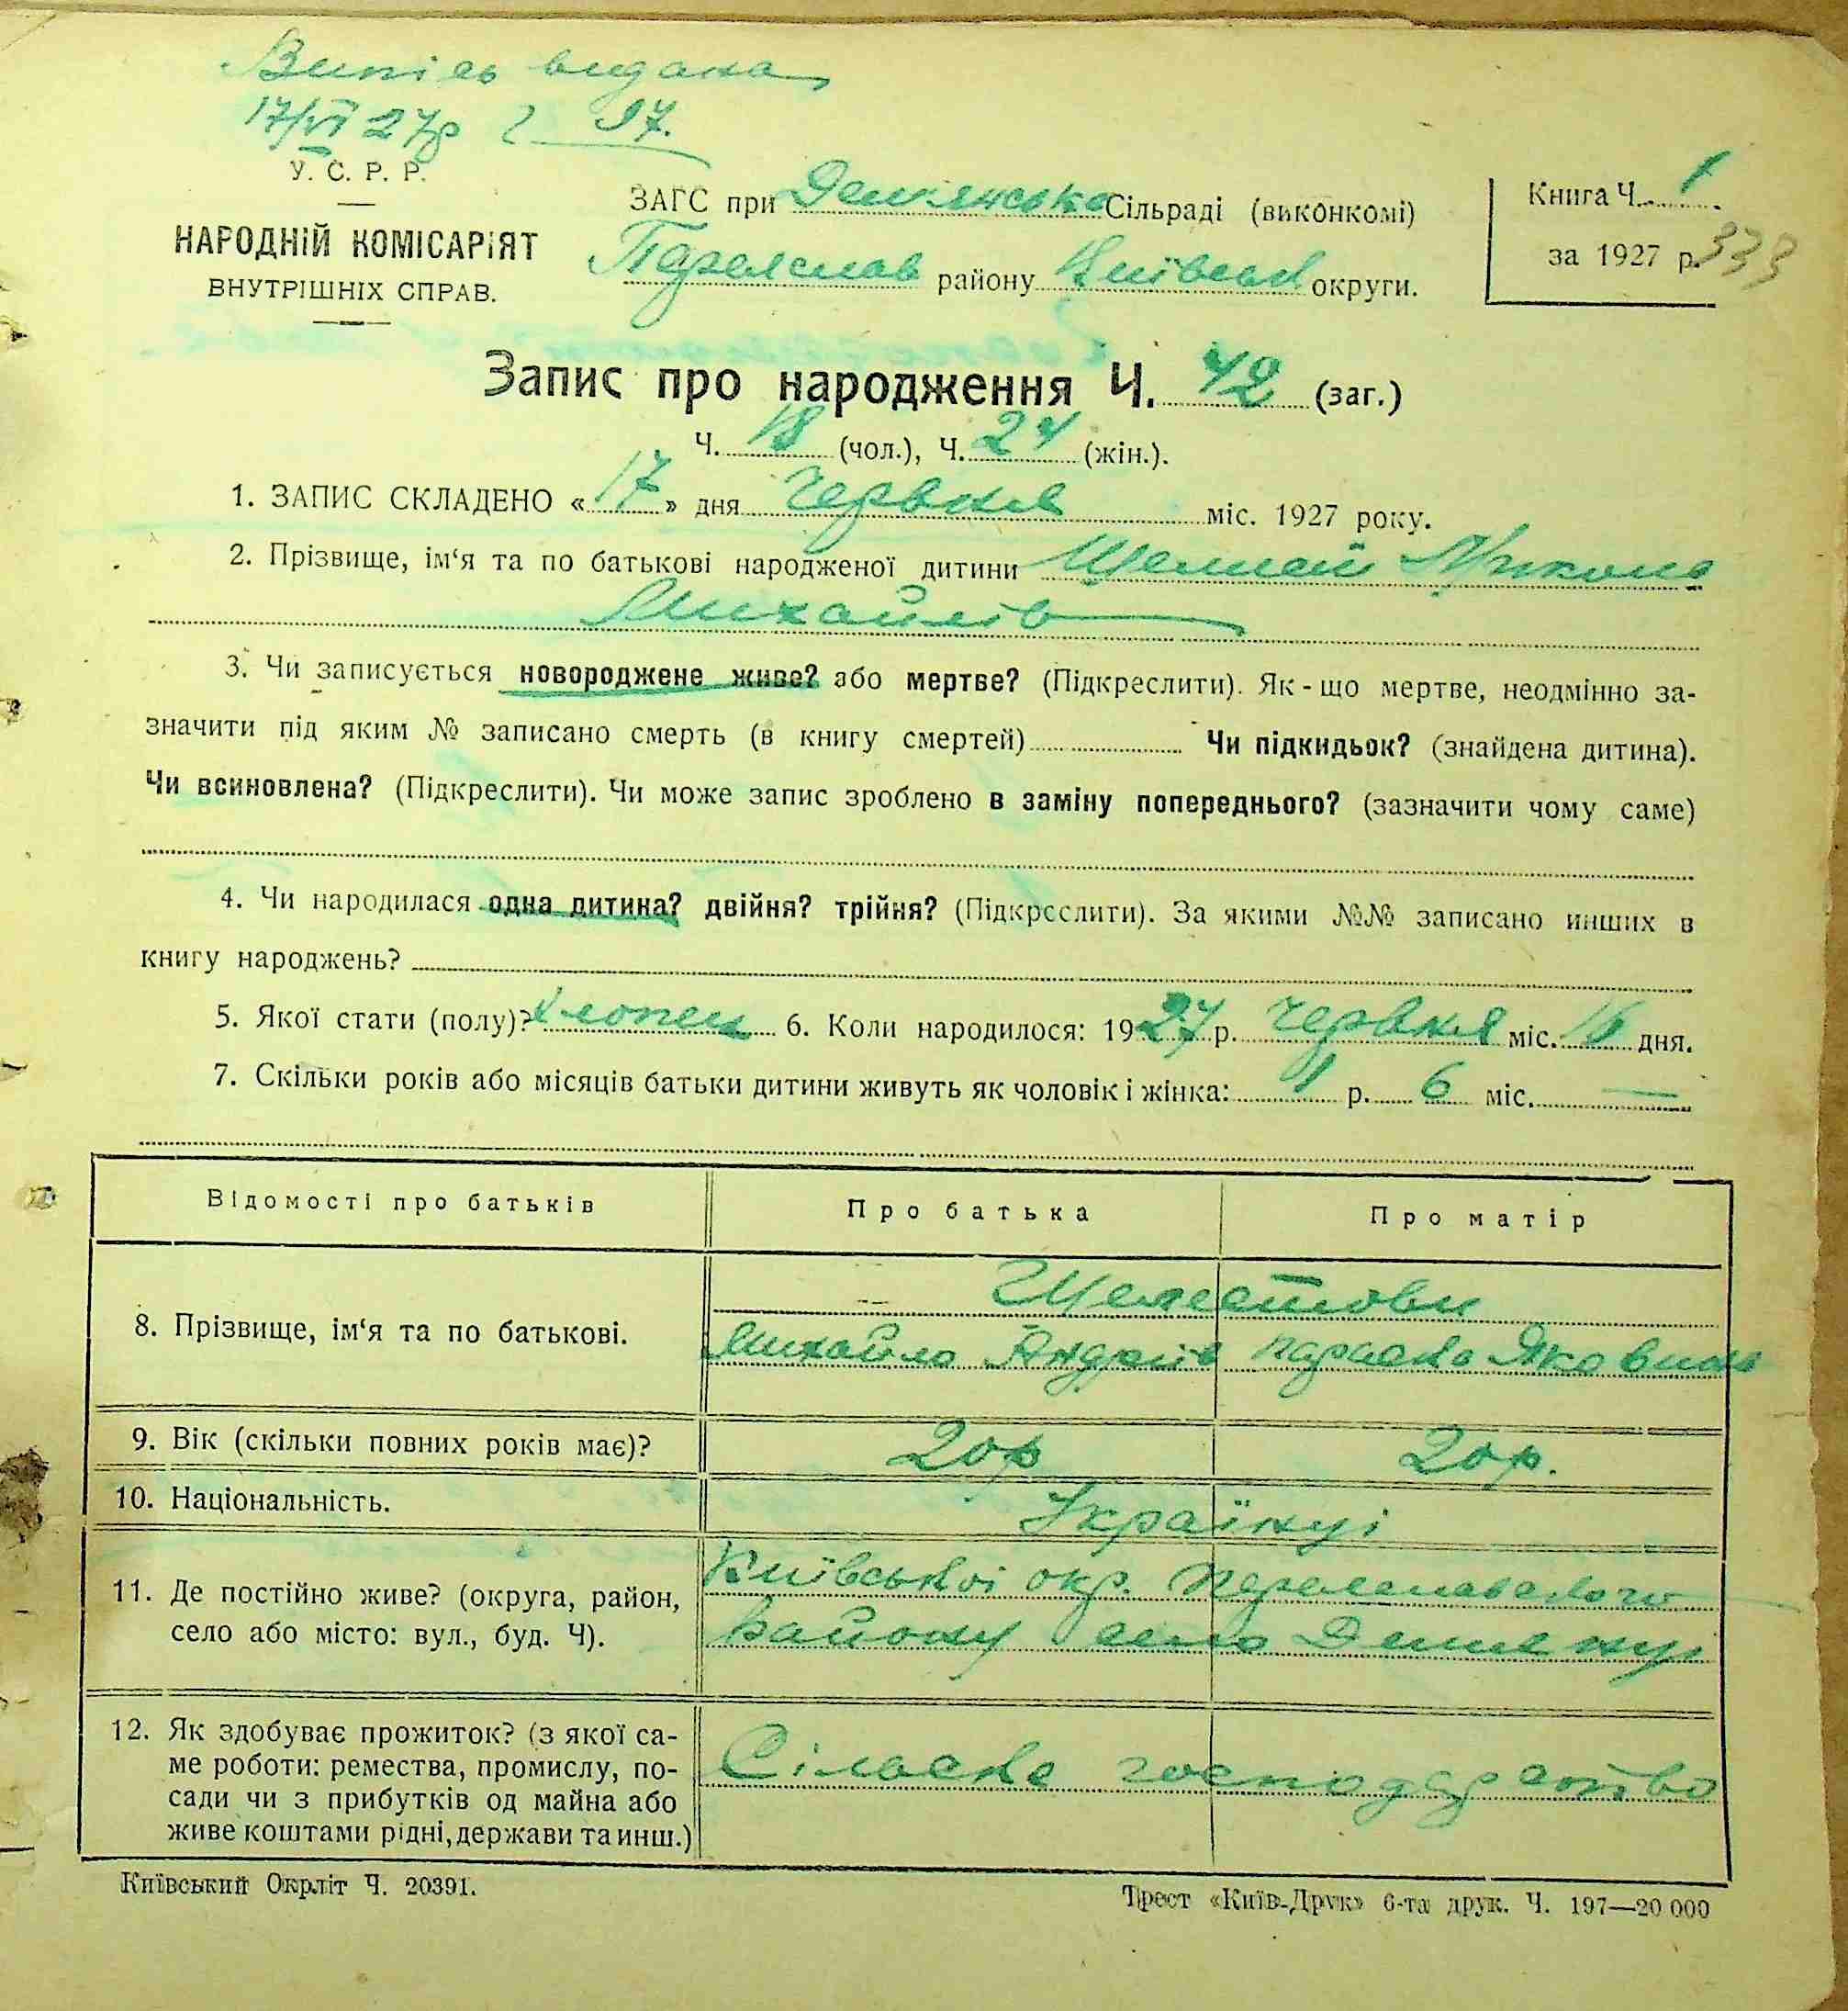 Випись видана
17/VI 27р 97.
У. С. Р. Р.
НАРОДНІЙ КОМІСАРІЯТ
ВНУТРІШНІХ СПРАВ.
ЗАГС при Сільраді (виконкомі)
Переяслав району Київськ округи.
Книга Ч. 1
за 1927 р. 333
Запис про народження Ч. 42 (заг.)
Ч. 18 (чол.), Ч. 24 (жін.).
1. ЗАПИС СКЛАДЕНО « 17 » дня Червня міс. 1927 року.
2. Прізвище, ім‘я та по батькові народженої дитини Микола
Михайлів
3. Чи записується новороджене живе? або мертве? (Підкреслити). Як-що мертве, неодмінно за-
значити під яким № записано смерть (в книгу смертей) Чи підкидьок? (знайдена дитина).
Чи всиновлена? (Підкреслити). Чи може запис зроблено в заміну попереднього? (зазначити чому саме)
4. Чи народилася одна дитина? двійня? трійня? (Підкреслити). За якими №№ записано инших в
книгу народжень?
5. Якої стати (полу)? Хлопець 6. Коли народилося: 1927 р. Червня міс. 16 дня.
7. Скільки років або місяців батьки дитини живуть як чоловік і жінка: 1 р. 6 міс. —
Відомості про батьків Про батька Про матір
8. Прізвище, ім‘я та по батькові.
Михайло Андріїв Параска Яковина
9. Вік (скільки повних років має)? 20р 20р.
10. Національність. Українці
11. Де постійно живе? (округа, район,
село або місто: вул., буд. Ч).
Київської окр. Переяславського
району село Демянці
12. Як здобуває прожиток? (з якої са-
ме роботи: ремества, промислу, по-
сади чи з прибутків од майна або
живе коштами рідні, держави та инш.)
Сільське господарство
Київський Окрліт Ч. 20391.
Трест «Київ-Друк» 6-та друк. Ч. 197—20 000